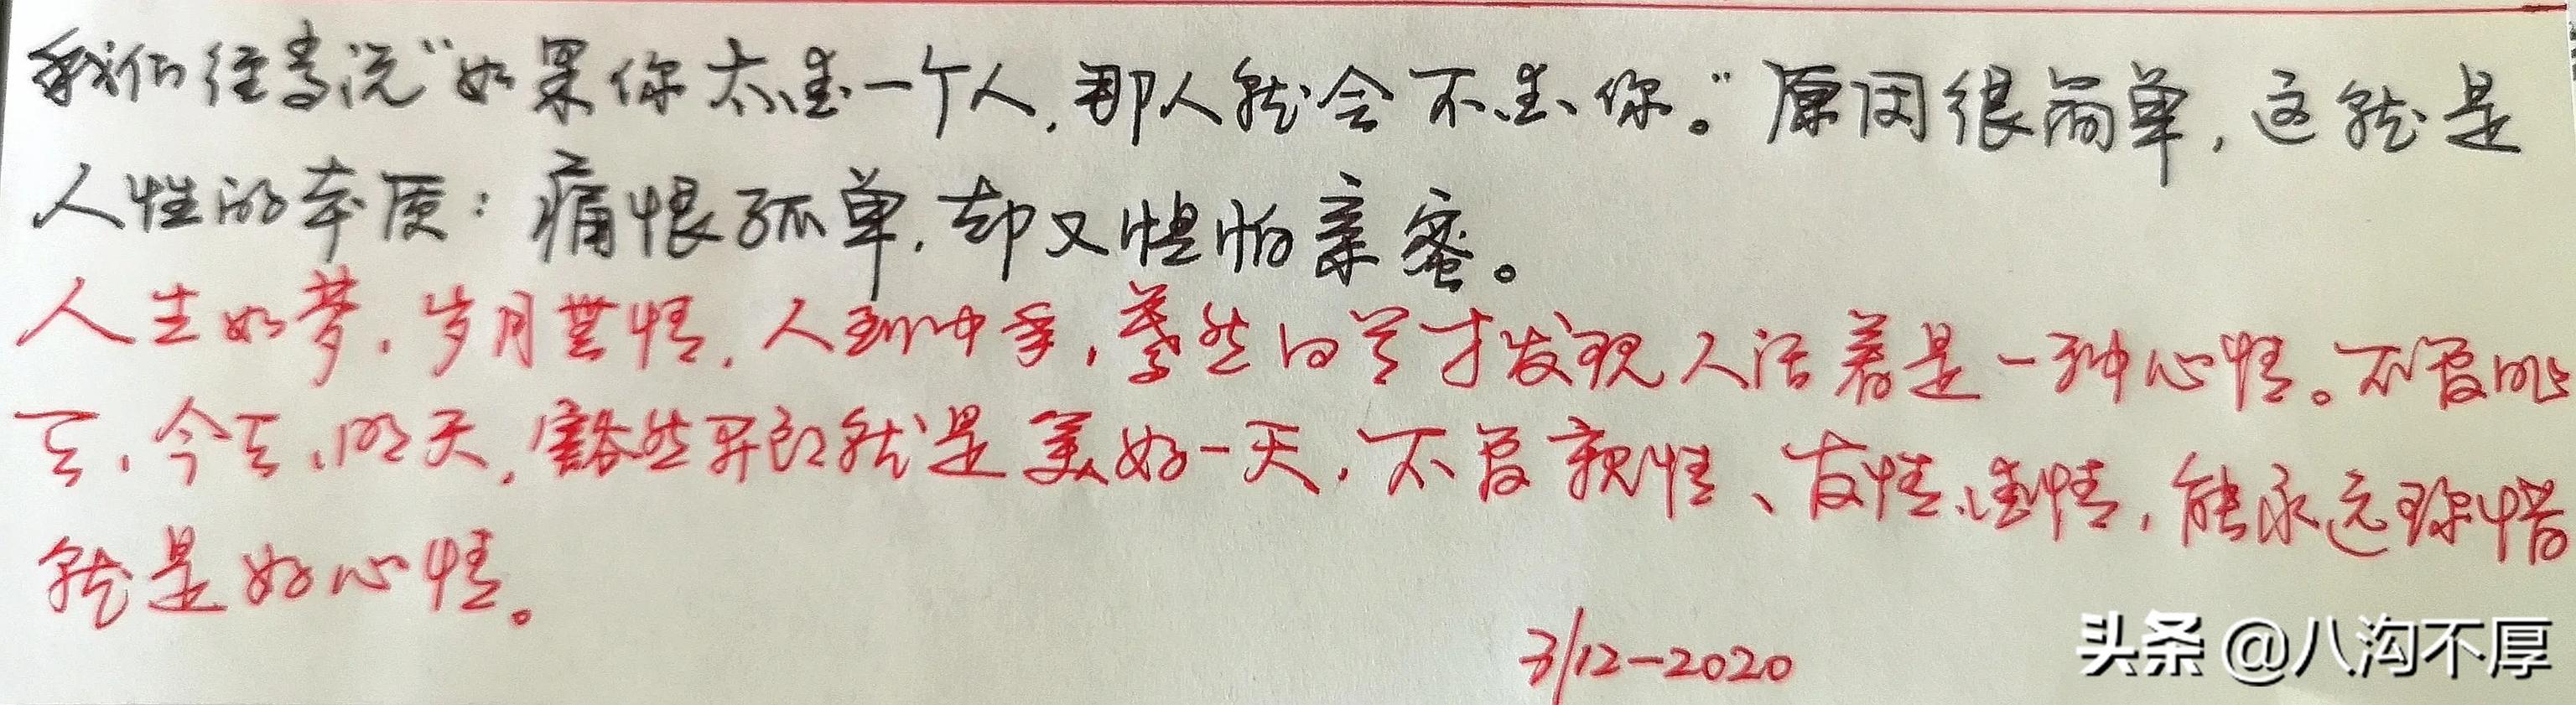 我们经常说“如果你太在意一个人,那人就会不在意你。”原因很简单,这就是
人性的本质:痛恨孤单,却又惧怕亲密。
人生如梦,岁月无情,人到中年,蓦然回首才发现人活着是一种心情。不管昨
天、今天、明天,豁然开朗就是美好一天,不管亲情、友情、爱情,能永远珍惜
就是好心情。
3/12-2020
头条 @八沟不厚